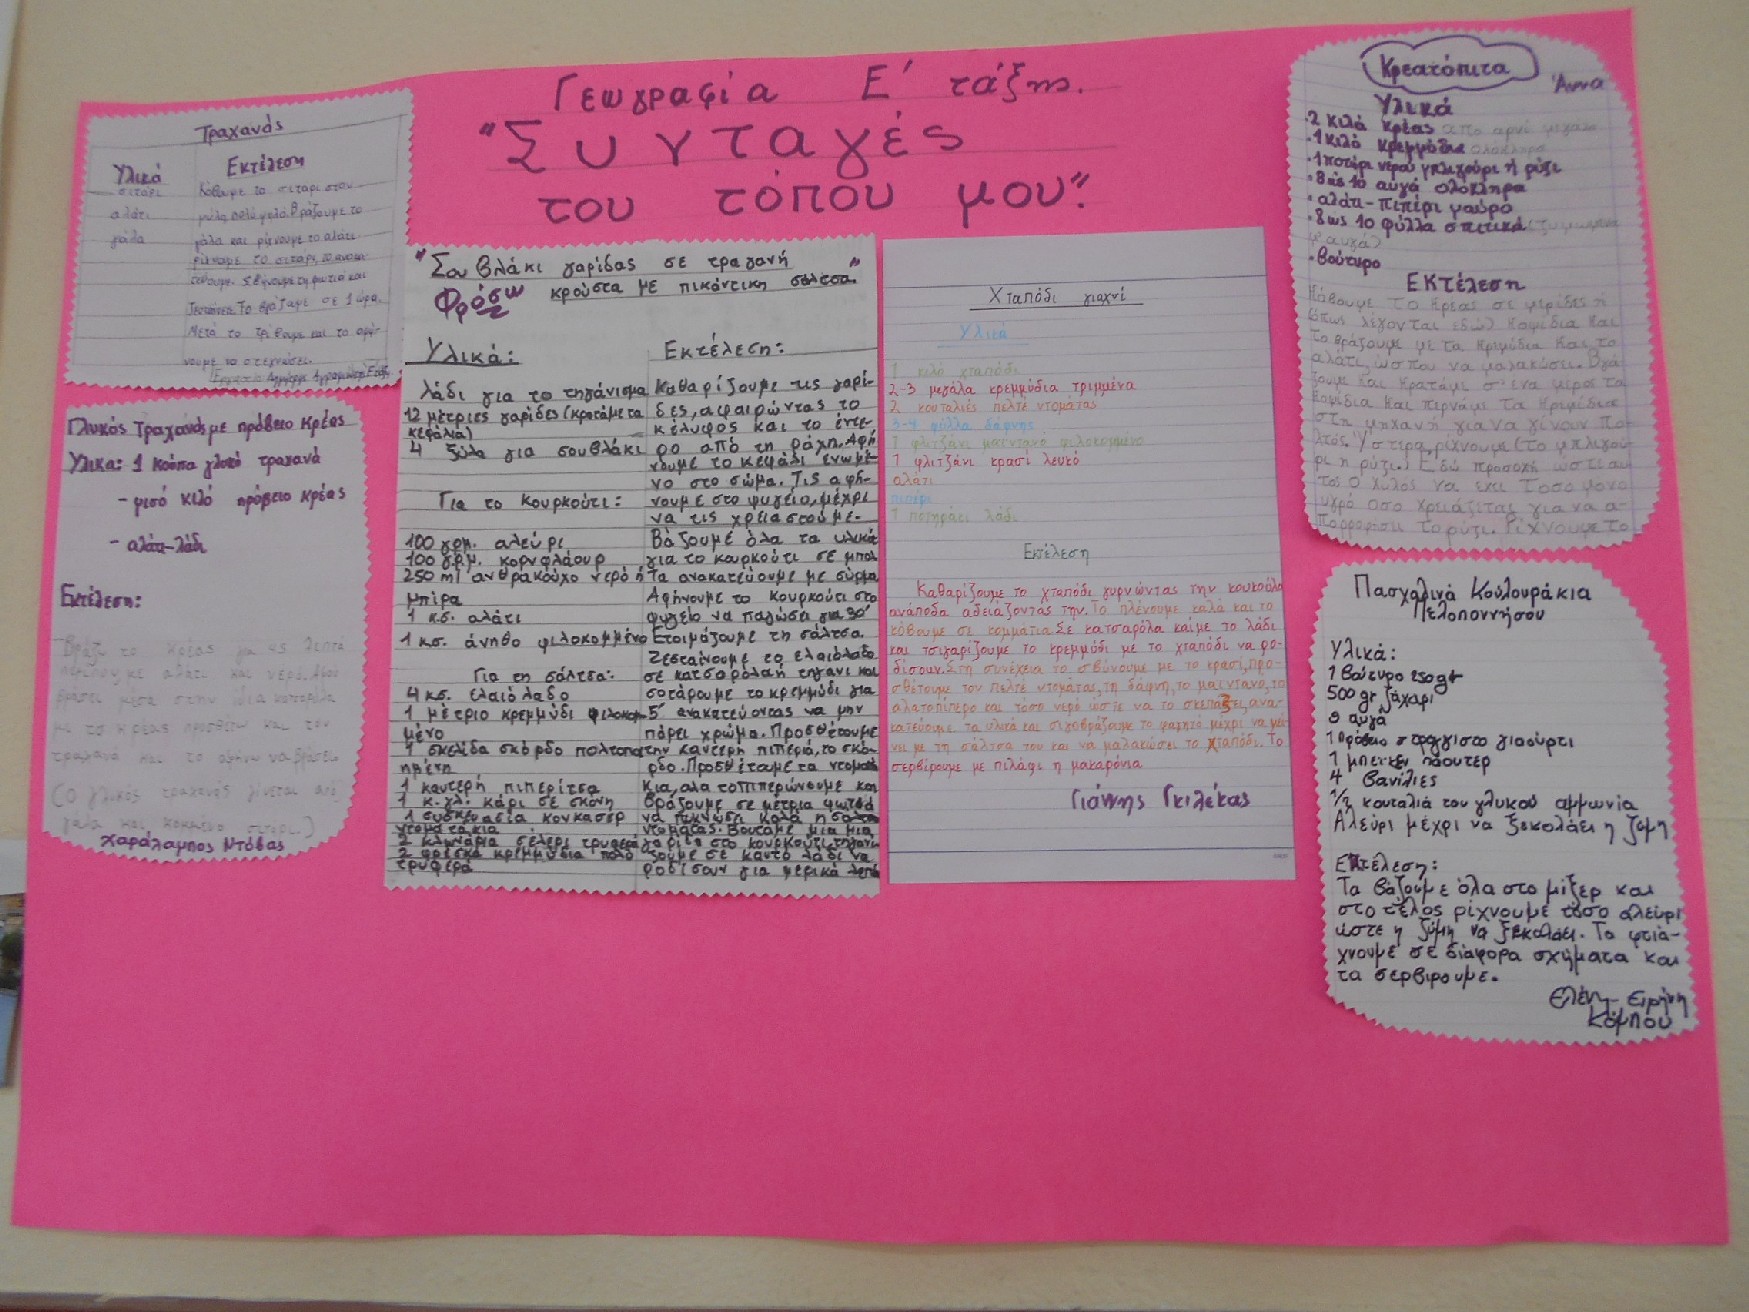 Γεωγραφία Ε' τάξης.
"Συνταγές
του τόπου μου".
Τραχανάς
Υλικά
σιτάρι
αλάτι
γάλα
Εκτέλεση
κόβουμε το σιτάρι στον
μύλο πολύ ψιλό. Βράζουμε το
γάλα και ρίχνουμε το αλάτι
ρίχνουμε το σιτάρι, το ανακα-
τεύουμε. Σβήνουμε τη φωτιά και
σε 1 ώρα.
Μετά το τρίβουμε και το αφή-
νουμε να στεγνώσει.
Γλυκός Τραχανάς με πρόβειο κρέας
Υλικα: 1 κούπα γλυκό τραχανά
- μισό κιλό πρόβειο κρέας
- αλάτι-λάδι
Εκτέλεση:
Βράζω το κρέας για 45 λεπτά
περίπου με αλάτι και νερό. Αφού
βράσει μέσα στην ίδια κατσαρόλα
με το κρέας προσθέτω και τον
τραχανά και το αφήνω να βράσει
(Ο γλυκός τραχανάς γίνεται από
γάλα και κομμένο σιτάρι.)
Χαράλαμπος Ντόβας
"Σουβλάκι γαρίδας σε τραγανή
κρούστα με πικάντικη σάλτσα."
Φρόσω
Υλικά:
λάδι για το τηγάνισμα
12 μέτριες γαρίδες (κρατάμε τα
κεφάλια)
4 ξύλα για σουβλάκι
Για το κουρκούτι:
100 γρμ. αλεύρι
100 γρμ. κορνφλάουρ
250 ml ανθρακούχο νερό ή
μπίρα
1 κσ. αλάτι
1 κσ. άνηθο ψιλοκομμένο
Για τη σάλτσα:
4 κσ. ελαιόλαδο
1 μέτριο κρεμμύδι ψιλοκομ-
μένο
1 σκελίδα σκόρδο πολτοποι-
ημένη
1 καυτερή πιπερίτσα
1 κ.γλ. κάρι σε σκόνη
1 συσκευασία κονκασέρ
ντοματάκια
2 κλωνάρια σέλερι τρυφερά
2 φρέσκα κρεμμύδια πολύ
τρυφερά
Εκτέλεση:
Καθαρίζουμε τις γαρί-
δες, αφαιρώντας το
κέλυφος και το έντε-
ρο από τη ράχη. Αφή
νουμε το κεφάλι ενωμέ-
νο στο σώμα. Τις αφή-
νουμε στο ψυγείο, μέχρι
να τις χρειαστούμε.
Βάζουμε όλα τα υλικά
για το κουρκούτι σε μπολ
Τα ανακατεύουμε με σύρμα
Αφήνουμε το κουρκούτι στο
ψυγείο να παγώσει για 30'
Ετοιμάζουμε τη σάλτσα.
Ζεσταίνουμε το ελαιόλαδο
σε κατσαρόλα ή τηγάνι και
σοτάρουμε το κρεμμύδι για
5' ανακατεύοντας να μην
πάρει χρώμα. Προσθέτουμε
την καυτερή πιπεριά, το σκό-
ρδο. Προσθέταμε τα ντοματά
κια, αλατοπιπερώνουμε και
βράζουμε σε μέτρια φωτιά
να πυκνώσει καλά η σάλτσα
ντομάτας. Βουτάμε μια μια
γαρίδα στο κουρκούτι, τηγανί
ζουμε σε καυτό λάδι να
ροδίσουν για μερικά λεπτά
Χταπόδι γιαχνί
Υλικά
1 κιλό χταπόδι
2-3 μεγάλα κρεμμύδια τριμμένα
2 κουταλιές πελτέ ντομάτας
3-4 φύλλα δάφνης
1 φλιτζάνι μαϊντανό ψιλοκομμένο
1 φλιτζάνι κρασί λευκό
αλάτι
πιπέρι
1 ποτηράκι λάδι
Εκτέλεση
Καθαρίζουμε το χταπόδι γυρνώντας την κουκούλα
ανάποδα αδειάζοντας την. Το πλένουμε καλά και το
κόβουμε σε κομμάτια. Σε κατσαρόλα καίμε το λάδι
και τσιγαρίζουμε το κρεμμύδι με το χταπόδι να ρο-
δίσουν. Στη συνέχεια το σβύνουμε με το κρασί, προ-
σθέτουμε τον πελτέ ντομάτας, τη δάφνη, το μαϊντανό, το
αλατοπίπερο και τόσο νερό ώστε να το σκεπάζει, ανα-
κατεύουμε τα υλικά και σιγοβράζουμε το φαγητό μέχρι να μεί-
νει με τη σάλτσα του και να μαλακώσει το χταπόδι. Το
σερβίρουμε με πιλάφι η μακαρόνια
Γιάννης Γκιλέκας
Κρεατόπιτα
Άννα
Υλικά
•2 κιλά κρέας από αρνί μεγάλο
•1 κιλό κρεμμύδια ολόκληρα
•1 ποτήρι νερού μπλιγούρι ή ρύζι
•8 ως 10 αυγά ολόκληρα
•αλάτι-πιπέρι μαύρο
•8 ως 10 φύλλα σπιτικά (ζυμωμένα
με αυγά)
•βούτυρο
Εκτέλεση
Κόβουμε το κρέας σε μερίδες ή
(όπως λέγονται εδώ) κομίδια και
το βράζουμε με τα κριμίδια και το
αλάτι, ώσπου να μαλακώσει. Βγά-
ζουμε και κρατάμε σ' ένα μέρος τα
κομίδια και περνάμε τα κριμίδια
στη μηχανή για να γίνουν πο-
λτός. Ύστερα, ρίχνουμε (το μπλιγού-
ρι η ρύζι.) Εδώ προσοχή ώστε αυ-
τός ο χυλός να έχει τόσο μόνο
υγρό όσο χρειάζεται για να α-
πορροφήσει το ρύζι. Ρίχνουμε το
Πασχαλινά Κουλουράκια
Πελοποννήσου
Υλικά:
1 βούτυρο 250gr
500 gr ζάχαρι
9 αυγά
1 πρόβειο στραγγιστό γιαούρτι
1 μπέικιν πάουτερ
4 βανίλιες
1/2 κουταλιά του γλυκού αμμωνία
Αλεύρι μέχρι να ξεκολάει η ζύμη
Εκτέλεση:
Τα βάζουμε όλα στο μίξερ και
στο τέλος ρίχνουμε τόσο αλεύρι
ώστε η ζύμη να ξεκολάει. Τα φτιά-
χνουμε σε διάφορα σχήματα και
τα σερβιρουμε.
Ελένη-Ειρήνη
Κόμπου